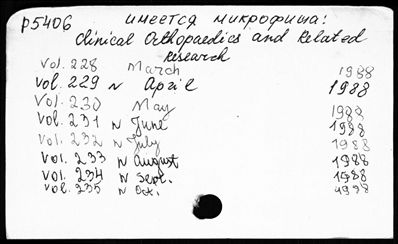 P5406 имеется микрофиша:
Clinical Orthopaedics and Related
Research
Vol. 228 March 1988
Vol. 229 N April 1988
Vol. 230 May 1988
Vol. 231 N June 1988
Vol. 232 N July 1988
Vol. 233 N August 1988
Vol. 234 N Sept. 1988
Vol. 235 N Oct. 1988